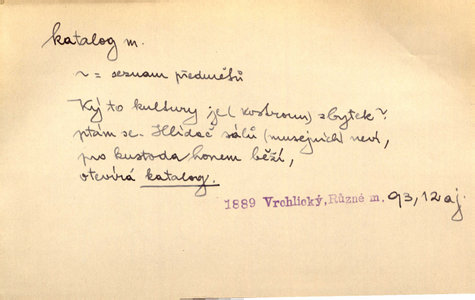 katalog m.
~ = seznam předmětů
Ký to kultury je (kostroun) zbytek?
ptám se. Hlídač sálů (musejních) neví,
pro kustoda honem běží,
otevírá katalog.
1889 Vrchlický, Různé m. 93, 12 aj.